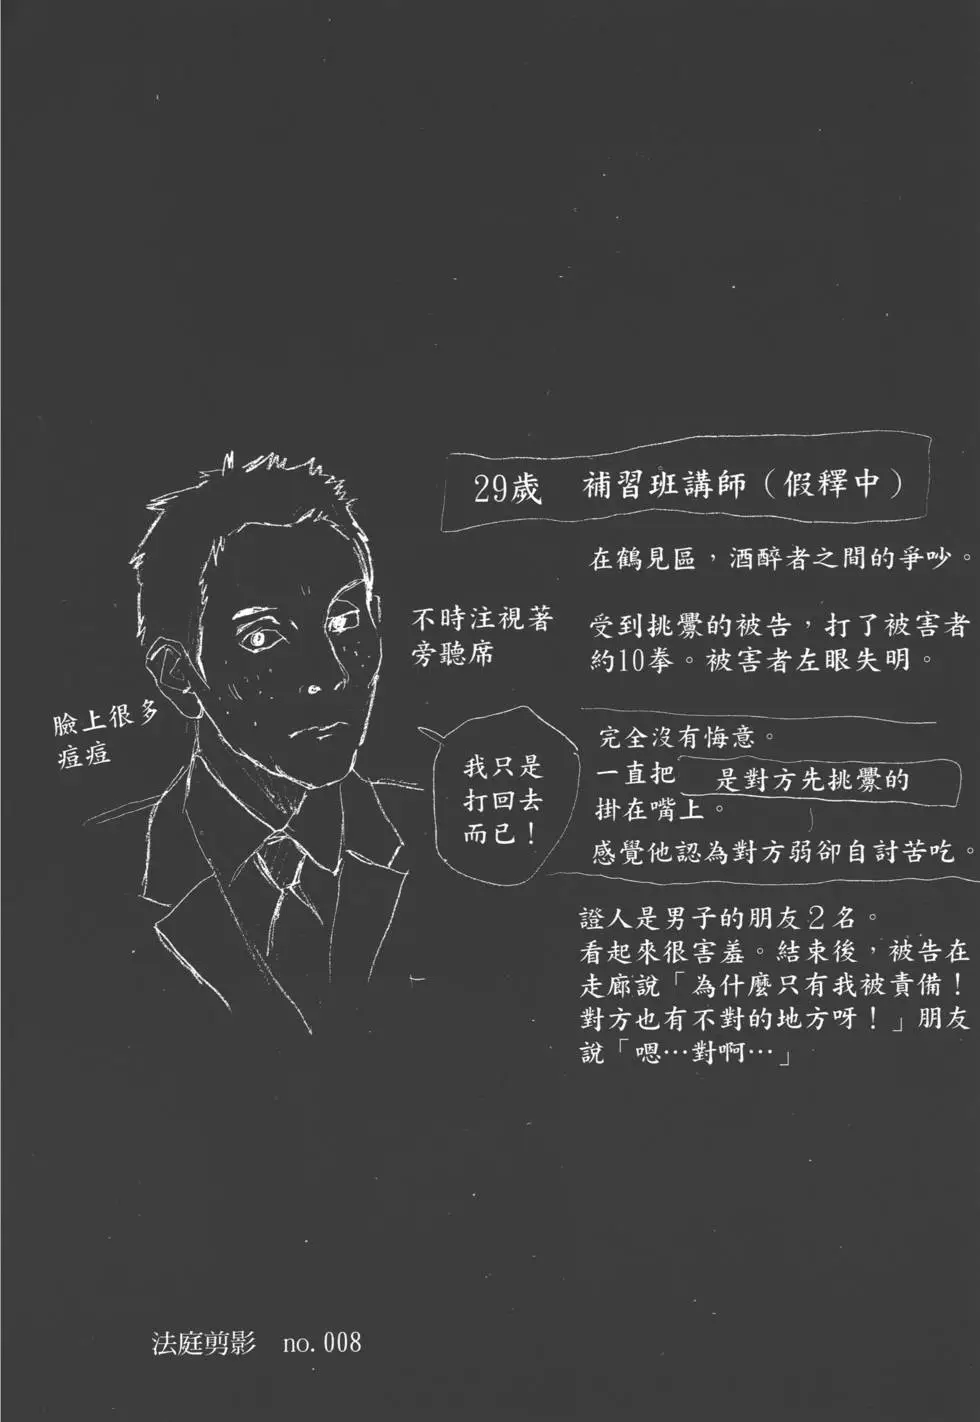 29歲　補習班講師（假釋中）
在鶴見區，酒醉者之間的爭吵。
受到挑釁的被告，打了被害者
約10拳。被害者左眼失明。
不時注視著
旁聽席
臉上很多
痘痘
我只是
打回去
而已！
完全沒有悔意。
一直把 是對方先挑釁的
掛在嘴上。
感覺他認為對方弱卻自討苦吃。
證人是男子的朋友２名。
看起來很害羞。結束後，被告在
走廊說「為什麼只有我被責備！
對方也有不對的地方呀！」朋友
說「嗯…對啊…」
法庭剪影　no.008